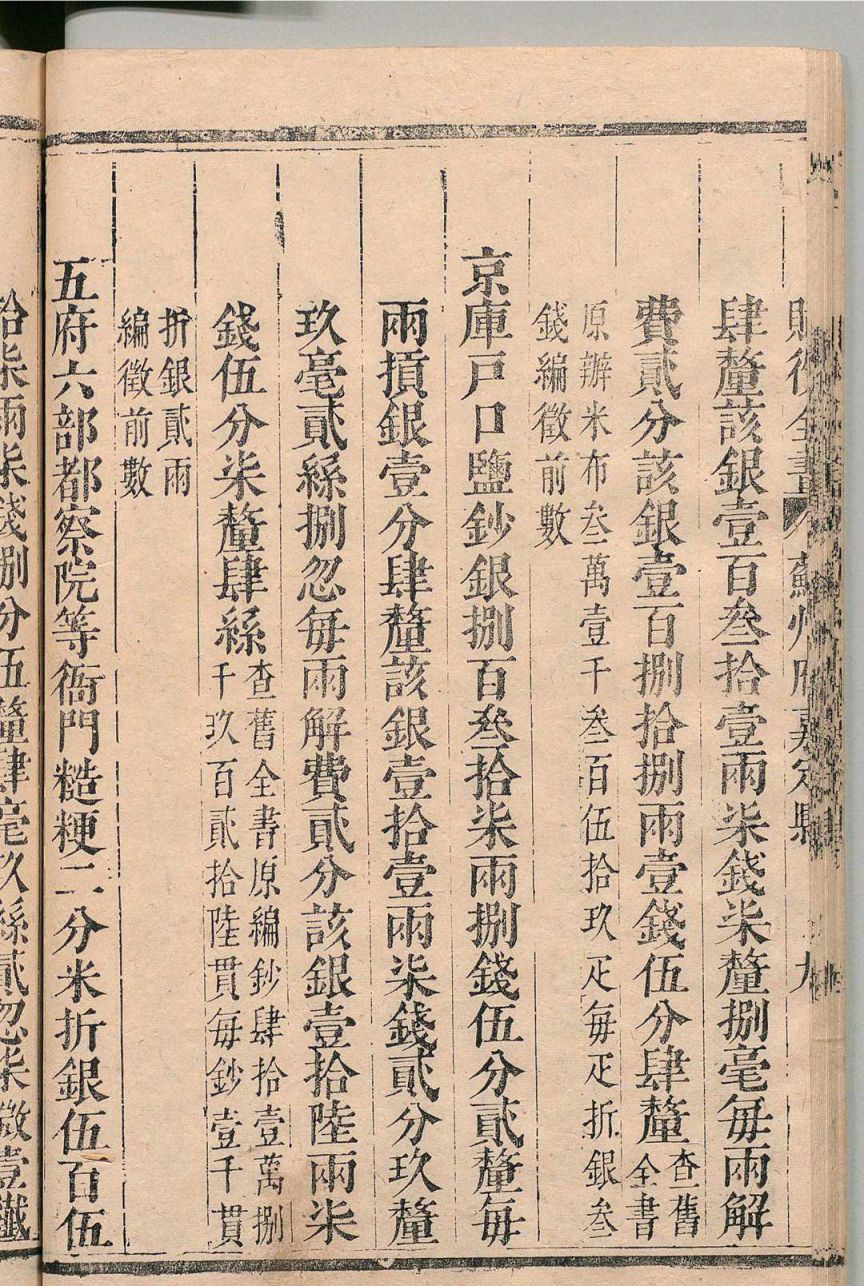 賦役全書 蘇州府嘉定縣 九
肆釐該銀壹百叁拾壹兩柒錢柒釐捌毫每兩解
費貳分該銀壹百捌拾捌兩壹錢伍分肆釐查舊全書
原辦米布叁萬壹千叁百伍拾玖疋每疋折銀叁
錢編徵前數
京庫戶口鹽鈔銀捌百叁拾柒兩捌錢伍分貳釐每
兩摃銀壹分肆釐該銀壹拾壹兩柒錢貳分玖釐
玖毫貳絲捌忽每兩解費貳分該銀壹拾陸兩柒
錢伍分柒釐肆絲查舊全書原編鈔肆拾壹萬捌
千玖百貳拾陸貫每鈔壹千貫
折銀貳兩
編徵前數
五府六部都察院等衙門糙粳二分米折銀伍百伍
拾柒兩柒錢捌分伍釐肆毫玖絲貳忽柒微壹纖